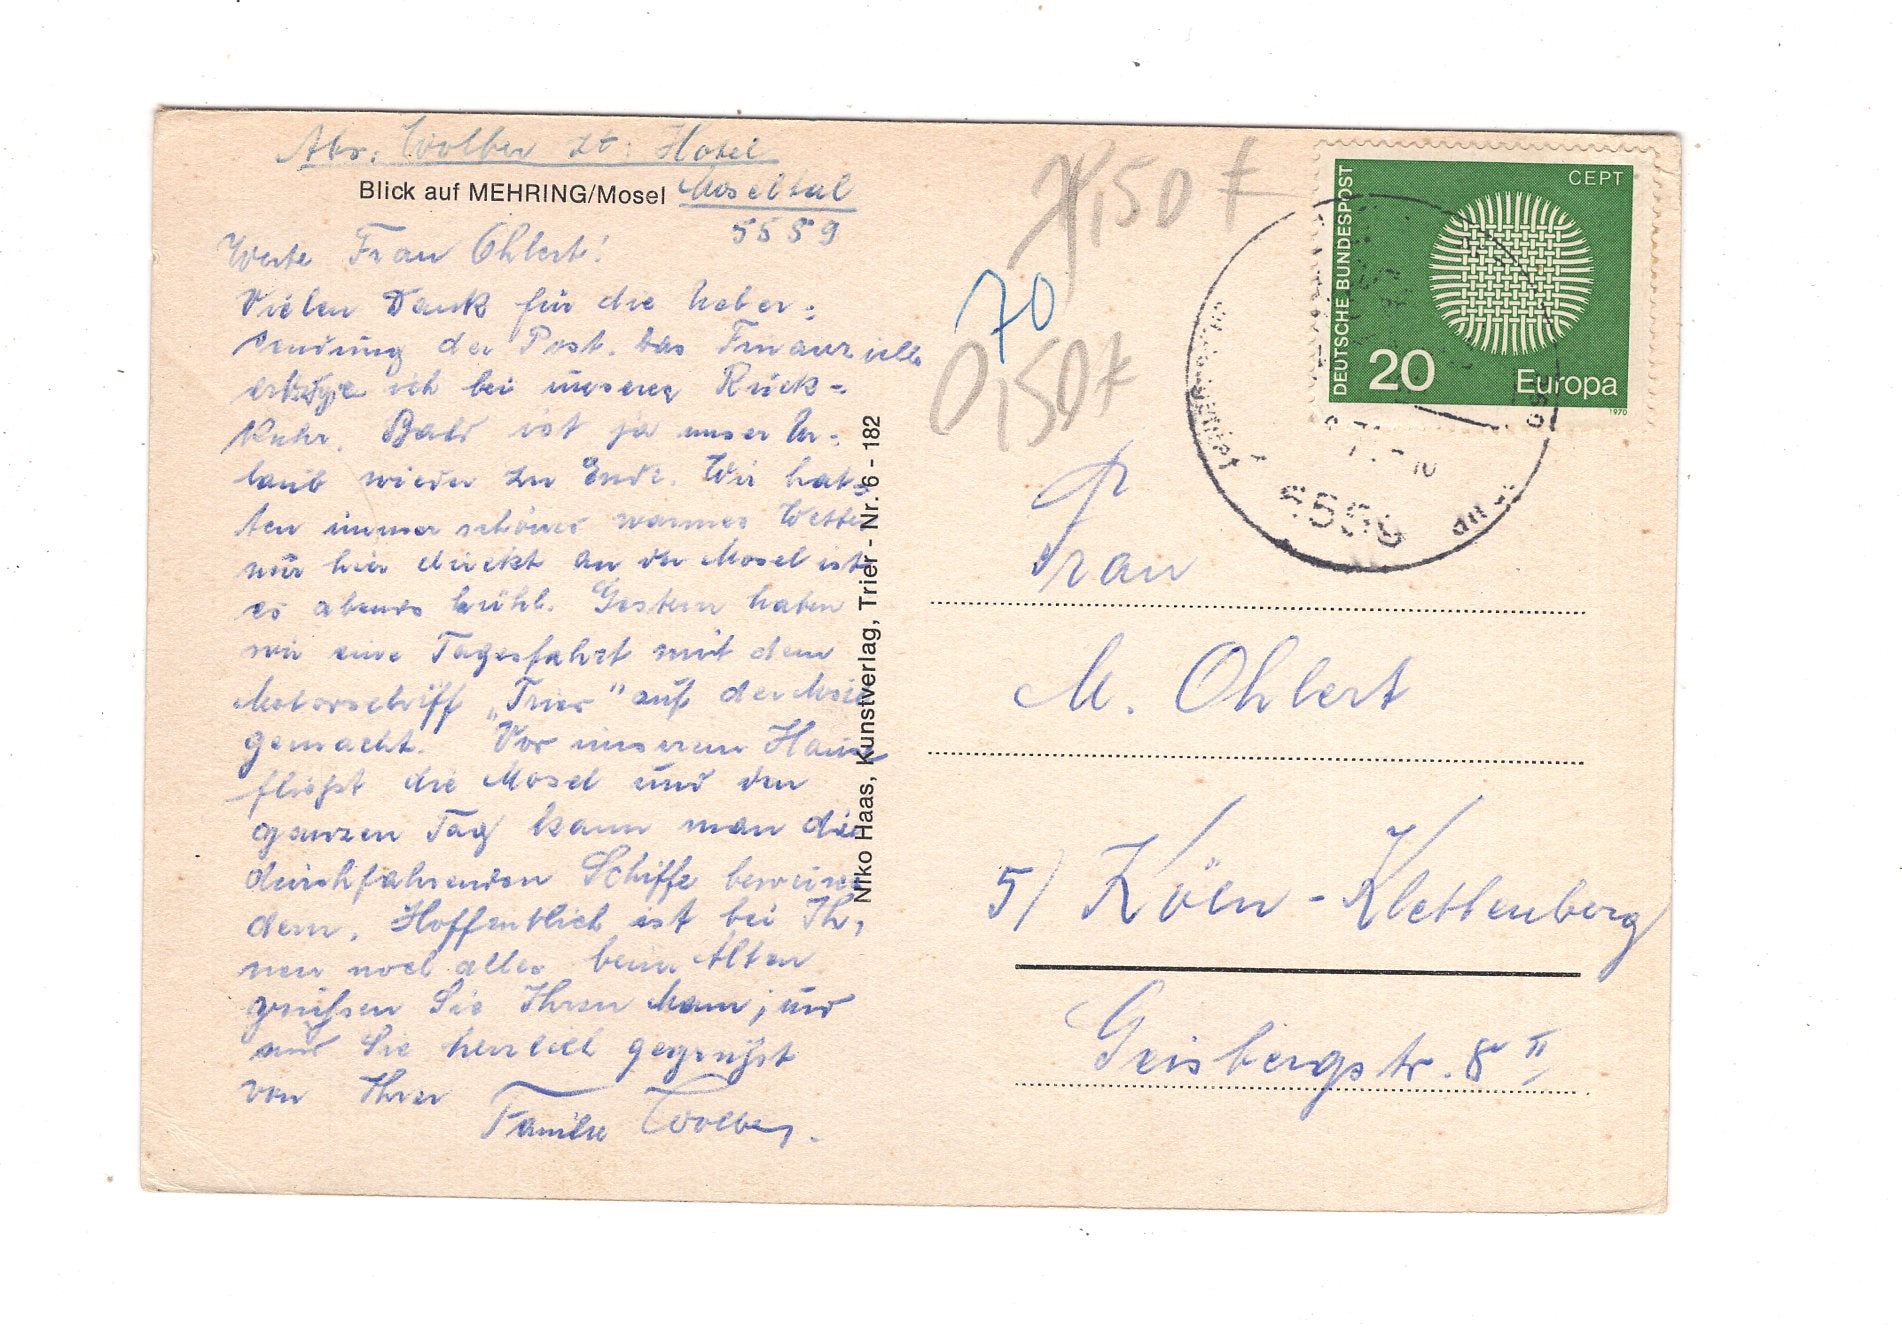 Abs. Wolber zt. Hotel
Blick auf MEHRING/Mosel Moseltal
5559
Werte Frau Ohlert!
Vielen Dank für die Ueber=
sendung der Post. das Finanzielle
erledige ich bei unserer Rück=
kehr. Bald ist ja unser Ur=
laub wieder zu Ende. Wir hat=
ten immer schönes warmes Wetter
nur hier direkt an der Mosel ist
es abends kühl. Gestern haben
wir eine Tagesfahrt mit dem
Motorschiff „Trier" auf der Mosel
gemacht. Vor unserem Hause
fließt die Mosel und den
ganzen Tag kann man die
durchfahrenden Schiffe bewun
dern. Hoffentlich ist bei Ih,
nen noch alles beim Alten
grüßen Sie Ihren Mann, und
sind Sie herzlich gegrüßt
von Ihrer
Familie Wolber.
Niko Haas, Kunstverlag, Trier - Nr. 6 - 182
1,50 €
70
0,50 €
DEUTSCHE BUNDESPOST
CEPT
20
Europa
1970
5559
Frau
M. Ohlert
5/ Köln-Klettenberg
Geisbergstr. 8 II